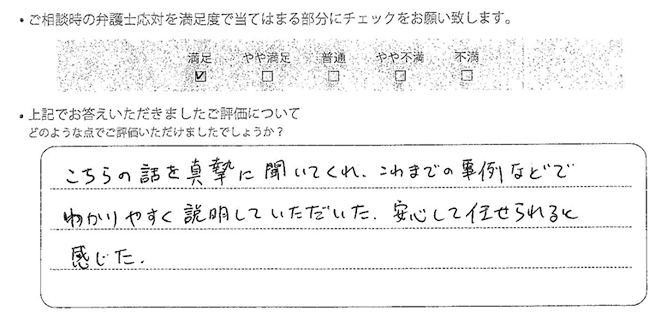 ・ご相談時の弁護士応対を満足度で当てはまる部分にチェックをお願い致します。
満足 やや満足 普通 やや不満 不満
☑ □ □ □ □
・上記でお答えいただきましたご評価について
どのような点でご評価いただけましたでしょうか？
こちらの話を真摯に聞いてくれ、これまでの事例などで
わかりやすく説明していただいた。安心して任せられると
感じた。